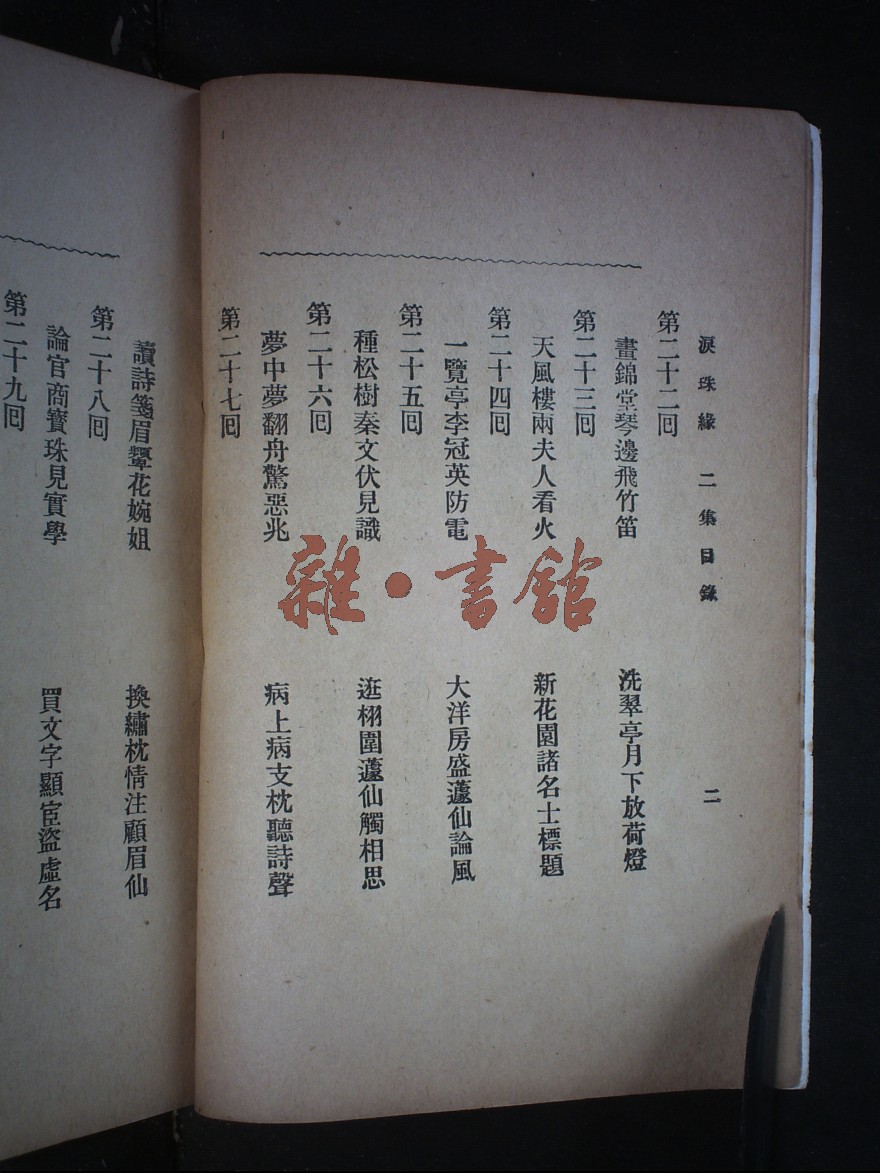 淚珠緣 二集目錄 二
第二十二回
畫錦堂琴邊飛竹笛 洗翠亭月下放荷燈
第二十三回
天風樓兩夫人看火 新花園諸名士標題
第二十四回
一覽亭李冠英防電 大洋房盛蘧仙論風
第二十五回
種松樹秦文伏見識 逛栩園蘧仙觸相思
第二十六回
夢中夢翻舟驚惡兆 病上病支枕聽詩聲
第二十七回
讀詩箋眉顰花婉姐 換繡枕情注顧眉仙
第二十八回
論官商寶珠見實學 買文字顯宦盜虛名
第二十九回
雜·書館